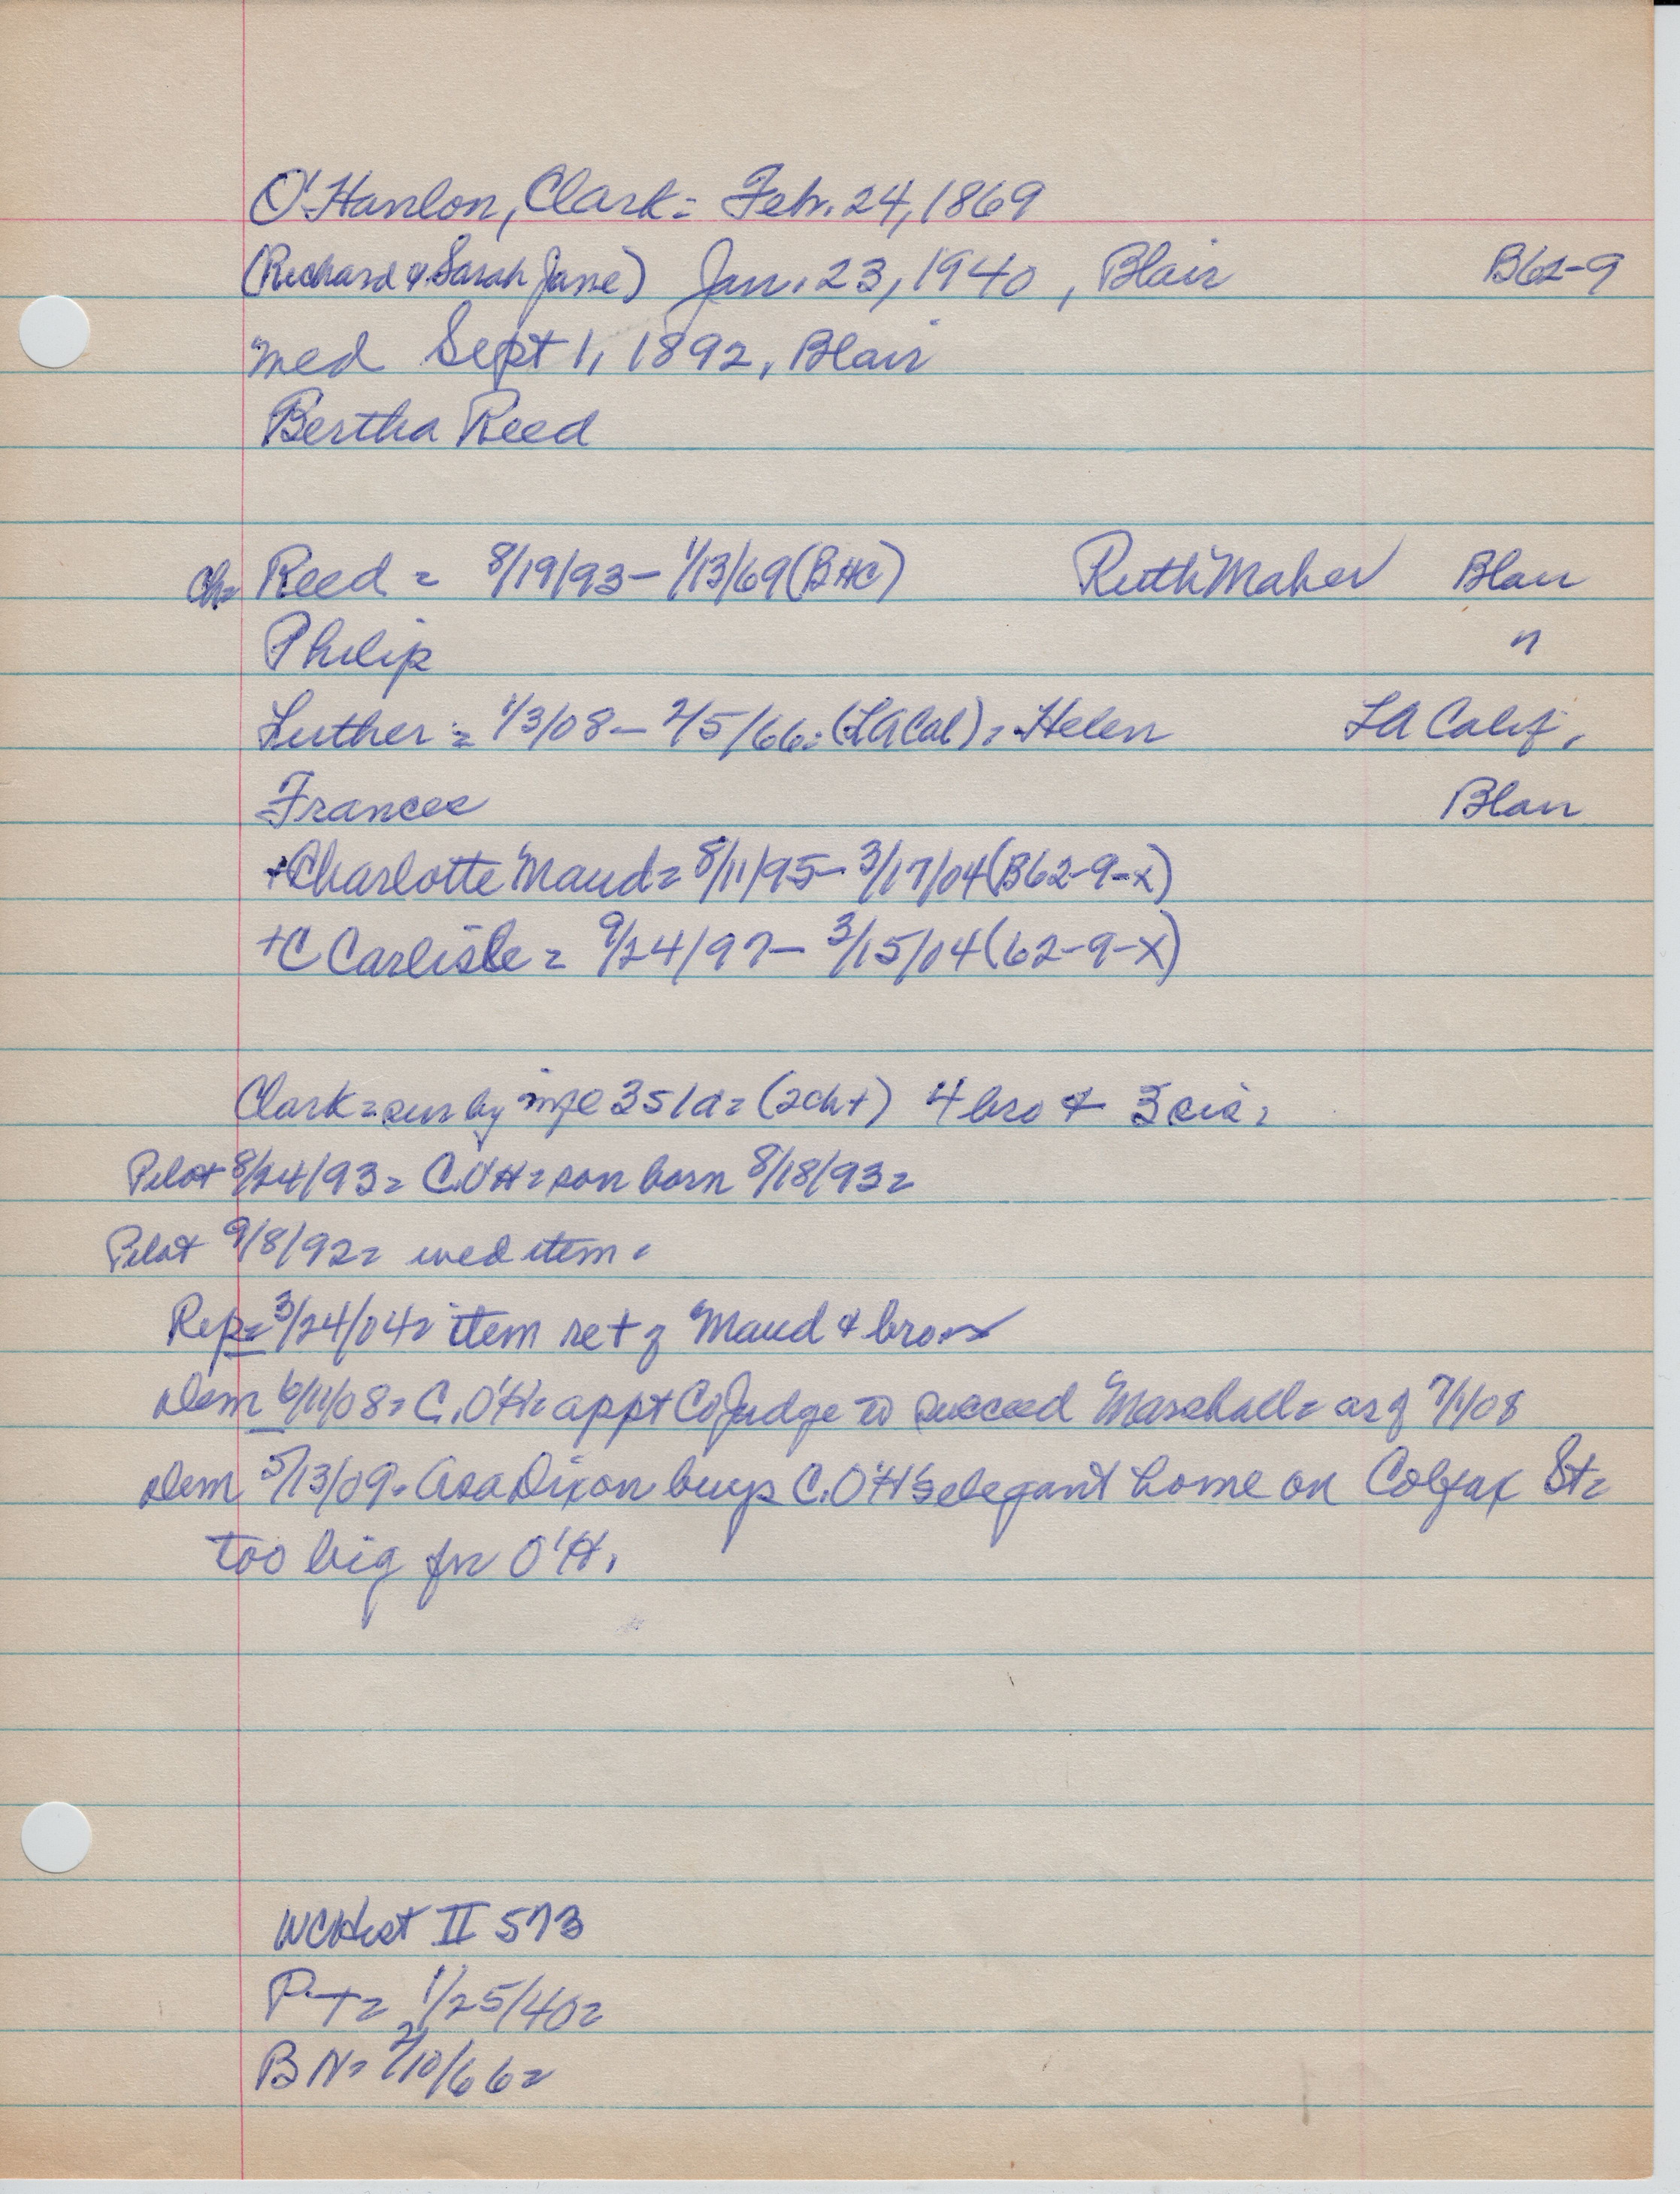 O'Hanlon, Clark = Feb. 24, 1869
(Richard & Sarah Jane) Jan. 23, 1940, Blair B62-9
med Sept 1, 1892, Blair
Bertha Reed
Ch= Reed = 8/19/93 - 1/13/69 (BHC) Ruth Maher Blair
Philip "
Luther = 1/3/08 - 2/5/66 = (LA Cal) = Helen LA Calif.
Frances Blair
+Charlotte Maud = 8/11/95 - 3/17/04 (B62-9-x)
+C Carlisle = 9/24/97 - 3/15/04 (62-9-X)
Clark = sur by wife 3s 1d = (2ch+) 4 bro & 3 sis =
Pilot 8/24/93 = C.O'H = son born 8/18/93 =
Pilot 9/8/92 = wed item =
Rep = 3/24/04 = item re + of Maud & bro
Dem 6/11/08 = C.O'H = appt Co Judge to succeed Marshall = as of 7/1/08
Dem 5/13/09 = Asa Dixon buys C.O'H's elegant home on Colfax St =
too big for O'H.
WCHist II 573
P-T = 1/25/40 =
BN = 2/10/66 =